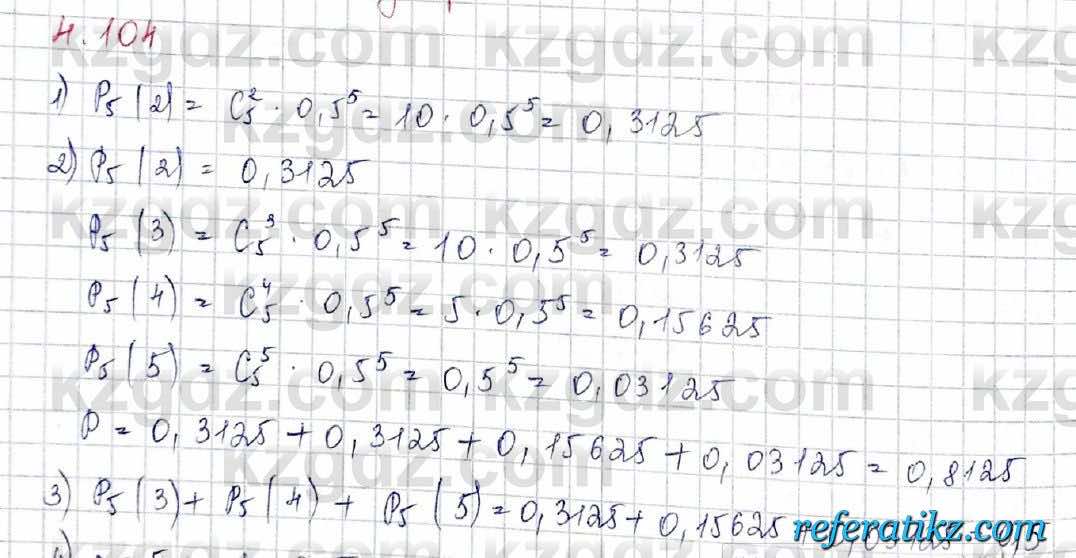 4.104
1) P₅(2) = C₅² · 0,5⁵ = 10 · 0,5⁵ = 0,3125
2) P₅(2) = 0,3125
P₅(3) = C₅³ · 0,5⁵ = 10 · 0,5⁵ = 0,3125
P₅(4) = C₅⁴ · 0,5⁵ = 5 · 0,5⁵ = 0,15625
P₅(5) = C₅⁵ · 0,5⁵ = 0,5⁵ = 0,03125
P = 0,3125 + 0,3125 + 0,15625 + 0,03125 = 0,8125
3) P₅(3) + P₅(4) + P₅(5) = 0,3125 + 0,15625
referatikz.com
kzgdz.com